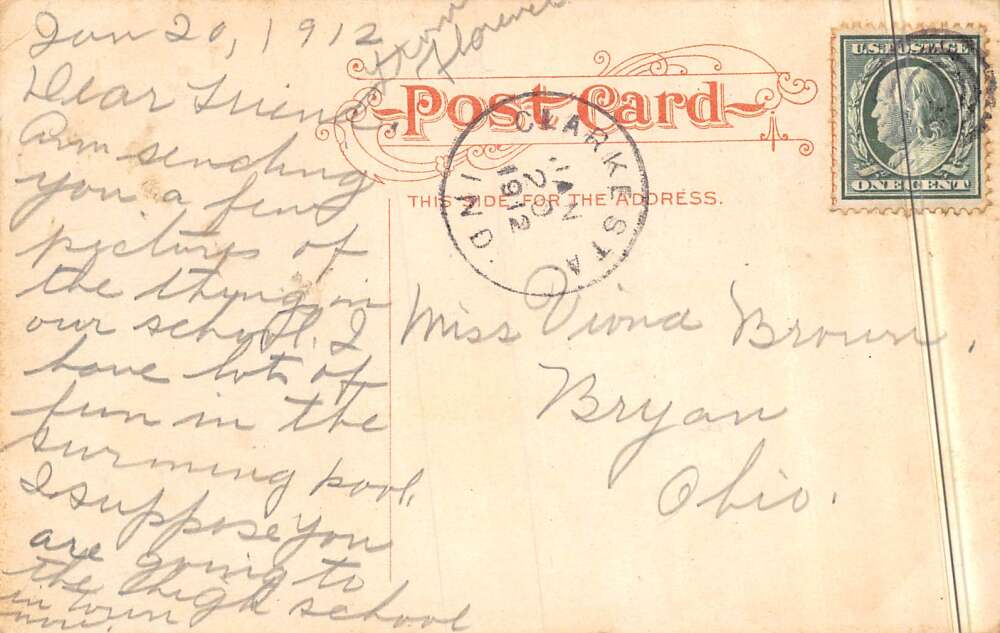 Jan 20, 1912
From
Florence
Dear Friend,
Am sending
you a few
pictures of
the things in
our school. I
have lots of
fun in the
swimming pool.
I suppose you
are going to
the high school
in town
now.
Post Card
THIS SIDE FOR THE ADDRESS.
CLARKE STA
IND
JAN
20
1912
U.S. POSTAGE
ONE CENT
Miss Viona Brown,
Bryan
Ohio.